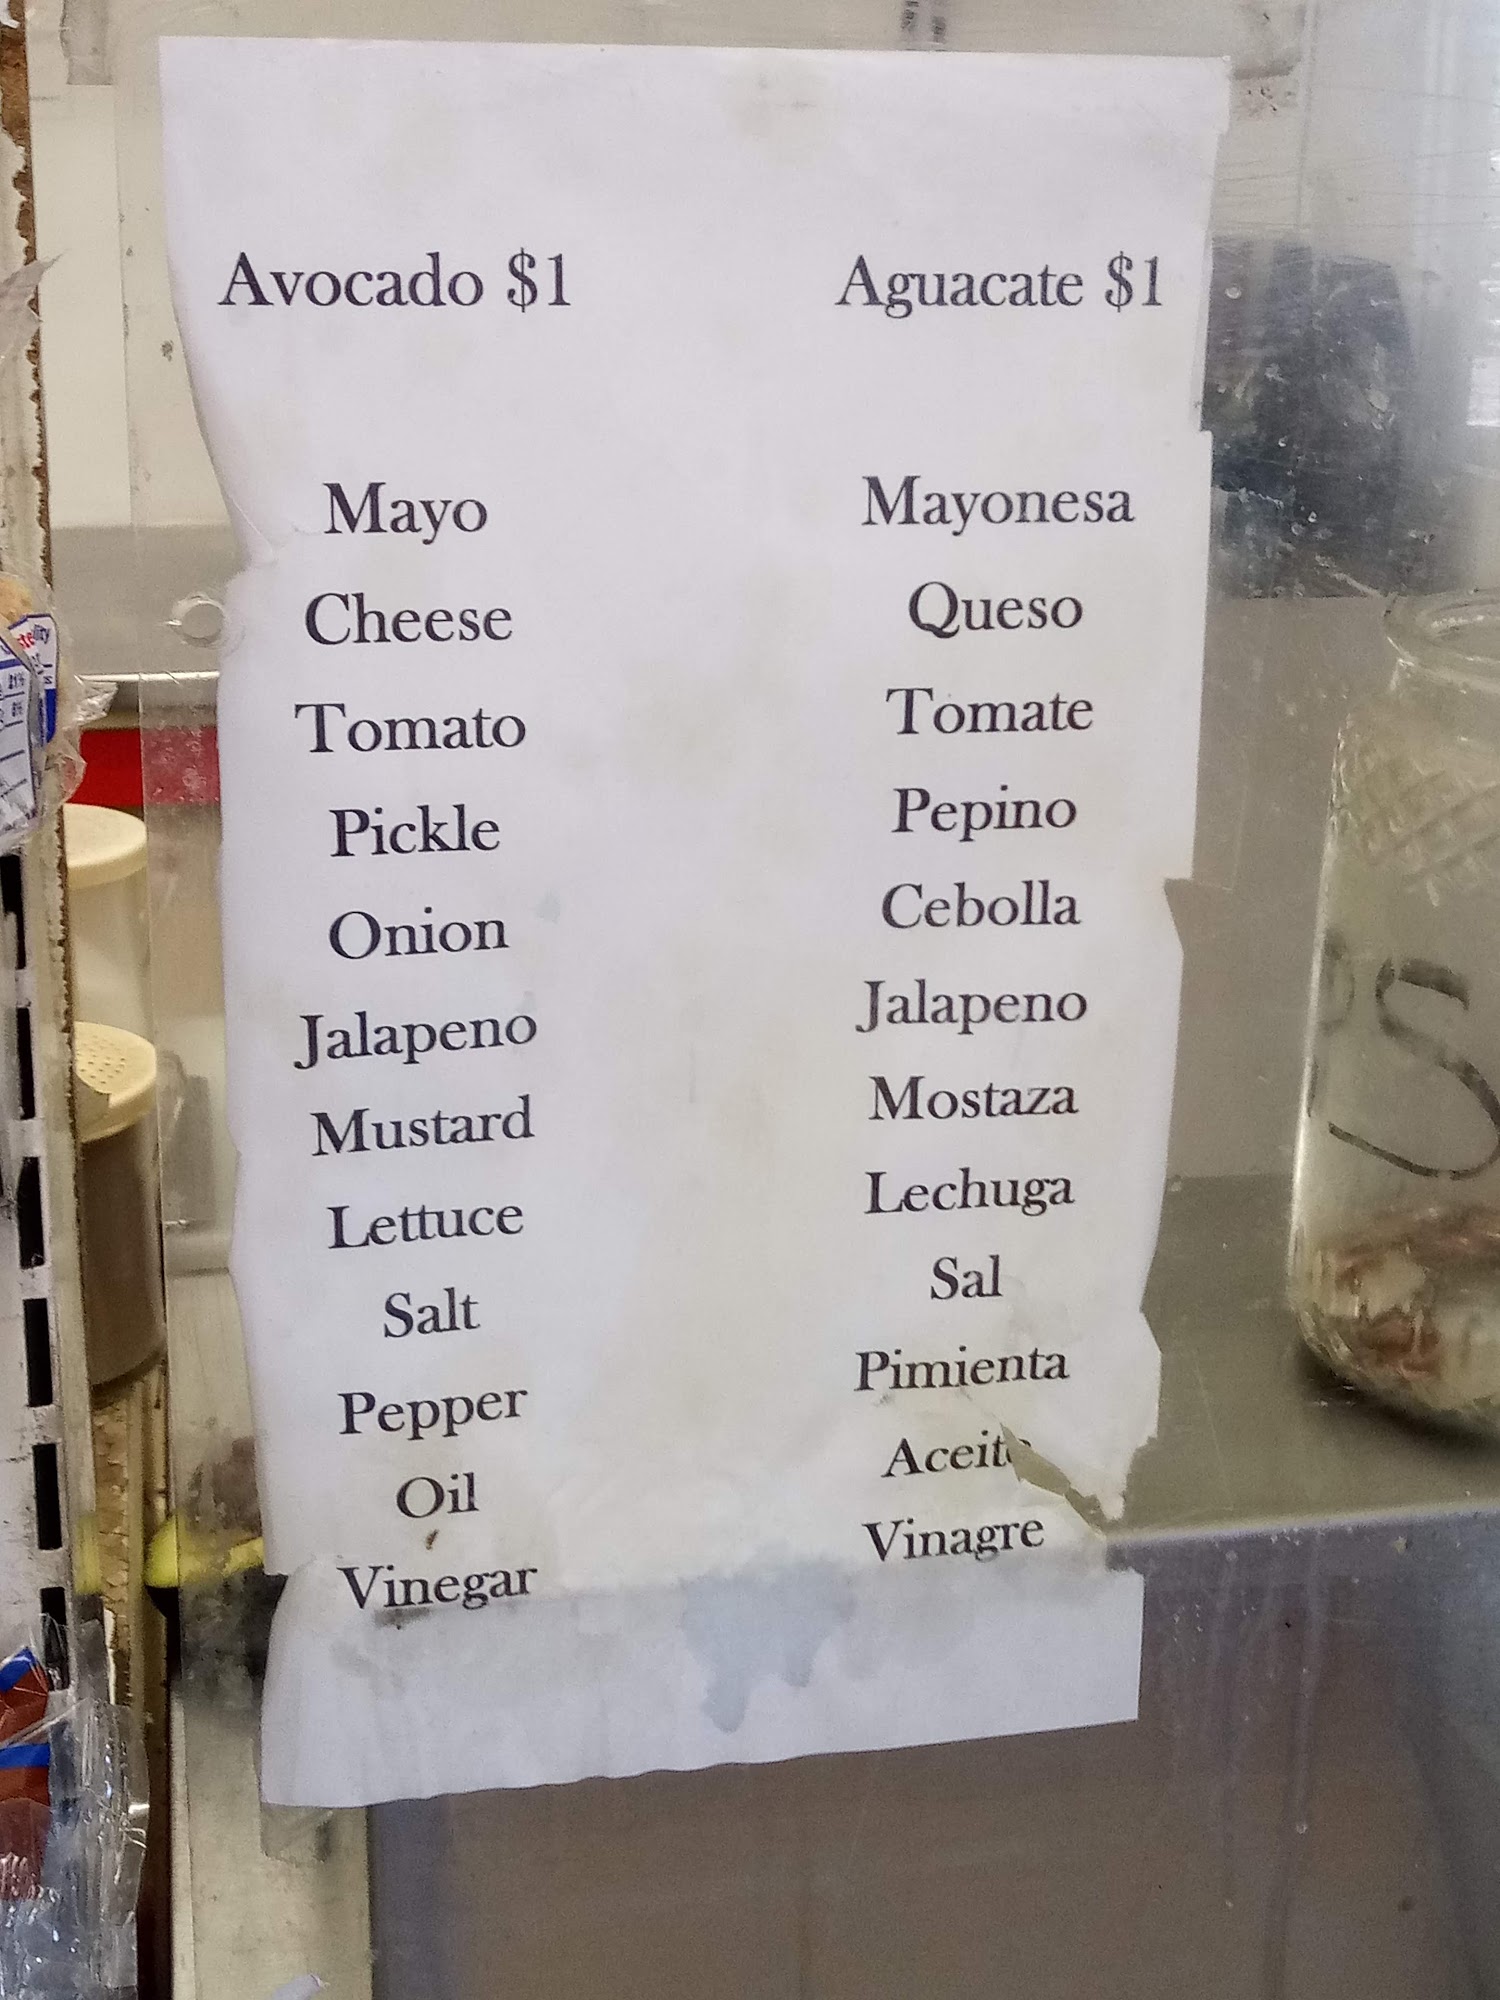 Avocado $1 Aguacate $1
Mayo Mayonesa
Cheese Queso
Tomato Tomate
Pickle Pepino
Onion Cebolla
Jalapeno Jalapeno
Mustard Mostaza
Lettuce Lechuga
Salt Sal
Pepper Pimienta
Oil Aceite
Vinegar Vinagre